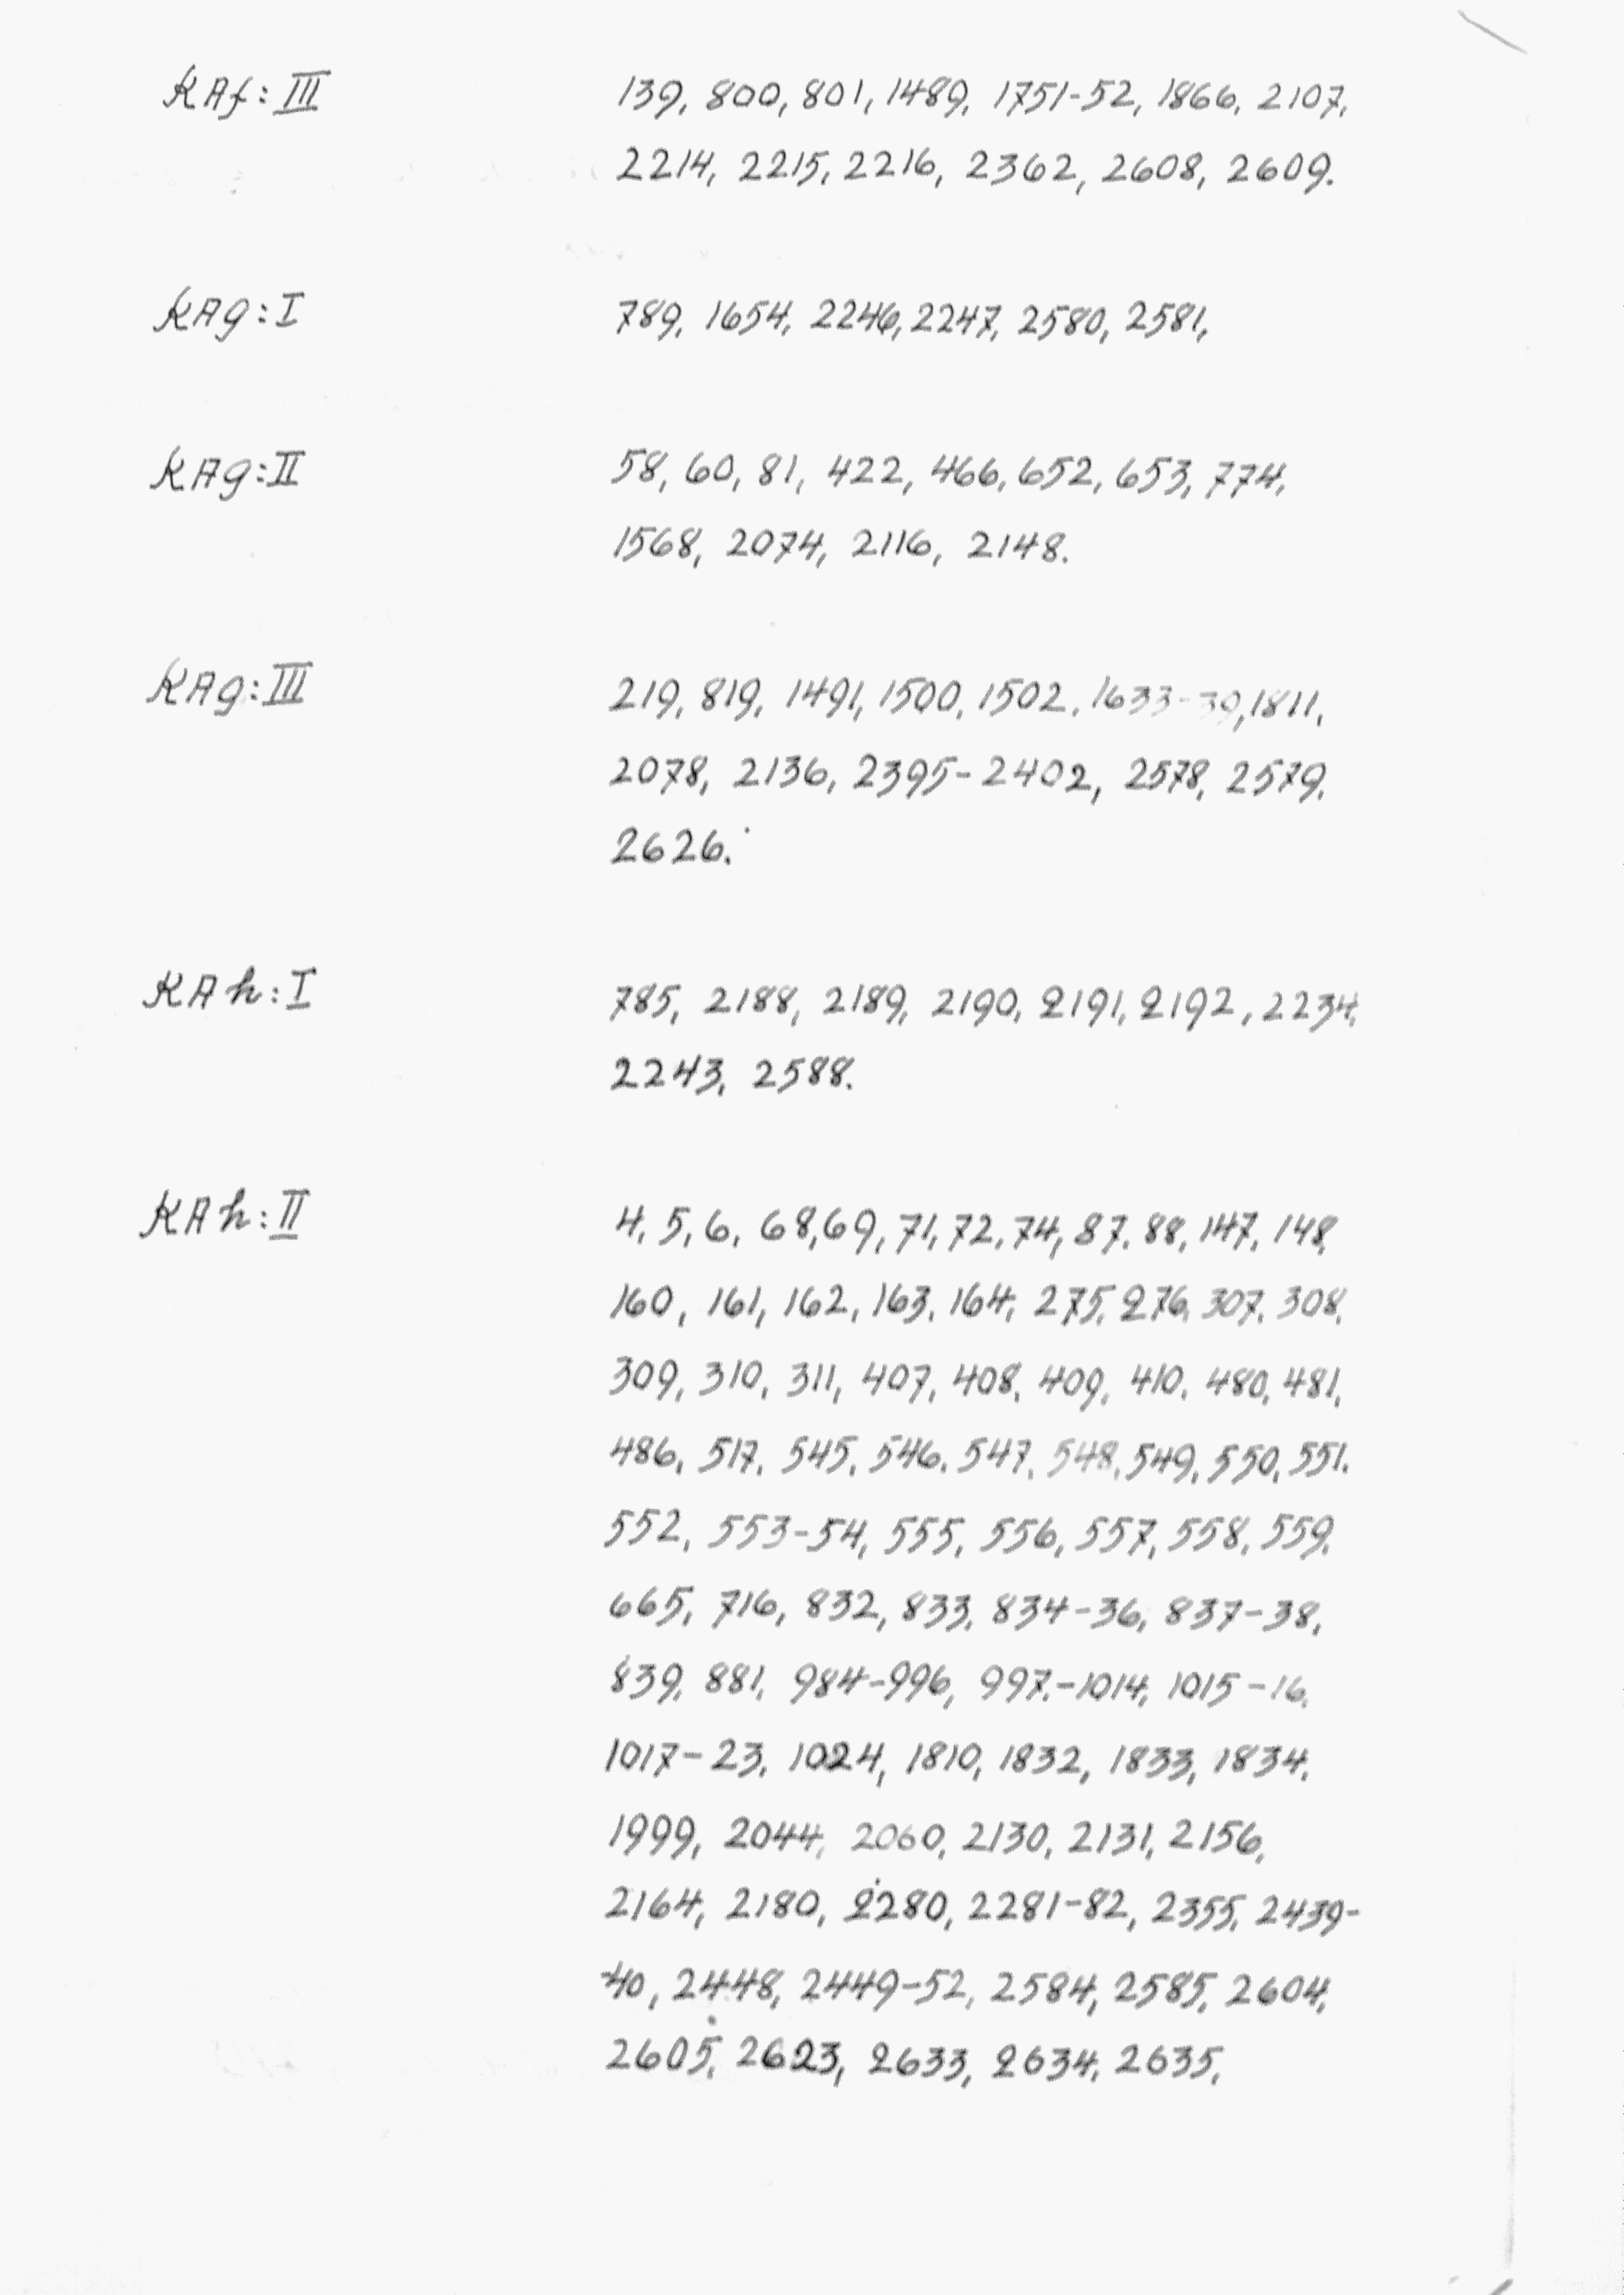 KAf: III 139, 800, 801, 1489, 1751-52, 1866, 2107,
2214, 2215, 2216, 2362, 2608, 2609.
KAg: I 789, 1654, 2246, 2247, 2580, 2581,
KAg: II 58, 60, 81, 422, 466, 652, 653, 774,
1568, 2074, 2116, 2148.
KAg: III 219, 819, 1491, 1500, 1502, 1633-39, 1811,
2078, 2136, 2395-2402, 2578, 2579,
2626.
KAh: I 785, 2188, 2189, 2190, 2191, 2192, 2234,
2243, 2588.
KAh: II 4, 5, 6, 68, 69, 71, 72, 74, 87, 88, 147, 148,
160, 161, 162, 163, 164, 275, 276, 307, 308,
309, 310, 311, 407, 408, 409, 410, 480, 481,
486, 517, 545, 546, 547, 548, 549, 550, 551,
552, 553-54, 555, 556, 557, 558, 559,
665, 716, 832, 833, 834-36, 837-38,
839, 881, 984-996, 997-1014, 1015-16,
1017-23, 1024, 1810, 1832, 1833, 1834,
1999, 2044, 2060, 2130, 2131, 2156,
2164, 2180, 2280, 2281-82, 2355, 2439-
-40, 2448, 2449-52, 2584, 2585, 2604,
2605, 2623, 2633, 2634, 2635,